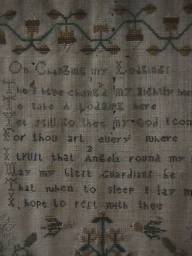 On Changing my Lodging
Tho I have changd my nightly hom
To take a Lodging here
Yet still to thee my God I com
For thou art every where
2
I trust that Angels round my
May my blest guardians be
That when to sleep I lay m
I hope to rest with thee